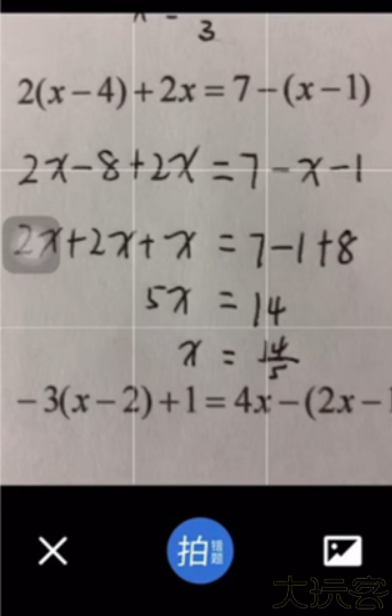 3
2(x−4)+2x=7−(x−1)
2x−8+2x=7−x−1
2x+2x+x=7−1+8
5x=14
x=14/5
−3(x−2)+1=4x−(2x−1
拍错题
大玩客